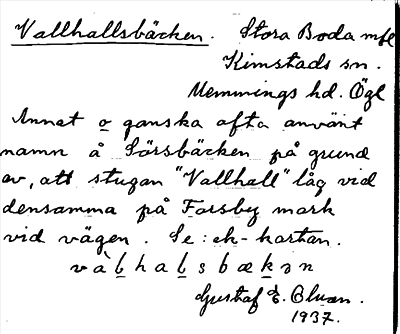 Vallhallsbäcken. Stora Boda mfl
Kimstads sn.
Memmings hd. Ögl
Annat o ganska ofta använt
namn å Sörsbäcken på grund
av, att stugan "Vallhall" låg vid
densamma på Forsby mark
vid vägen. Se: ek-kartan.
Gustaf E.
1937.